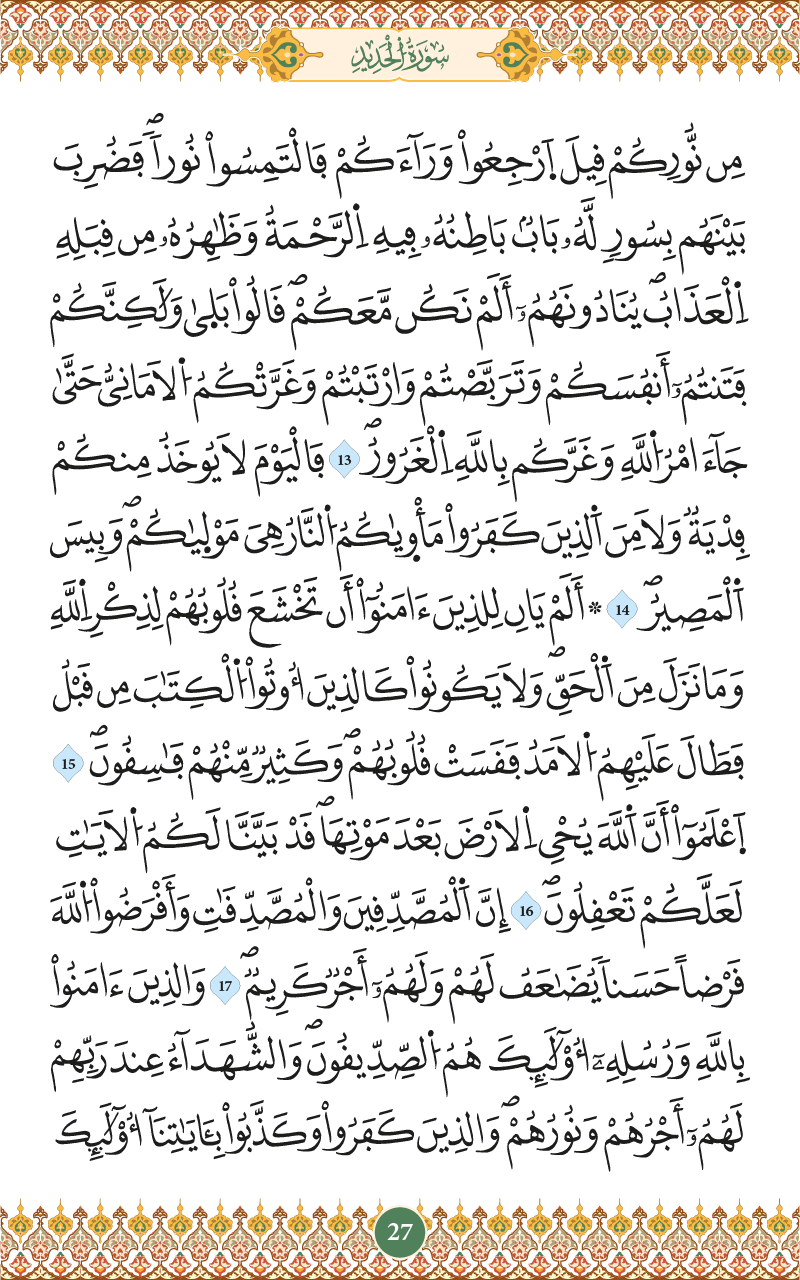 سُورَةُ الْحَدِيدِ
مِن نُّورِكُمْ قِيلَ اَرْجِعُواْ وَرَآءَكُمْ فَالْتَمِسُواْ نُوراٗۖ فَضُرِبَ
بَيْنَهُم بِسُورٖ لَّهُۥ بَابُۢ بَاطِنُهُۥ فِيهِ اِ۬لرَّحْمَةُ وَظَٰهِرُهُۥ مِن قِبَلِهِ
اِ۬لْعَذَابُۖ يُنَادُونَهُمُۥٓ أَلَمْ نَكُن مَّعَكُمْۖ قَالُواْ بَل۪ىٰ وَلَٰكِنَّكُمْ
فَتَنتُمُۥٓ أَنفُسَكُمْ وَتَرَبَّصْتُمْ وَارْتَبْتُمْ وَغَرَّتْكُمُ اُ۬لَامَانِيُّ حَتَّىٰ
جَآءَ امْرُ اُ۬للَّهِ وَغَرَّكُم بِاللَّهِ اِ۬لْغَرُورُۖ 13 فَالْيَوْمَ لَا يُوخَذُ مِنكُمْ
فِدْيَةٞ وَلَا مِنَ اَ۬لذِينَ كَفَرُواْ مَأْو۪يٰكُمُ اُ۬لنَّارُ هِيَ مَوْل۪يٰكُمْۖ وَبِيسَ
اَ۬لْمَصِيرُۖ 14 ۞ أَلَمْ يَانِ لِلذِينَ ءَامَنُوٓاْ أَن تَخْشَعَ قُلُوبُهُمْ لِذِكْرِ اِ۬للَّهِ
وَمَا نَزَلَ مِنَ اَ۬لْحَقِّۖ وَلَا يَكُونُواْ كَالذِينَ أُوتُواْ اُ۬لْكِتَٰبَ مِن قَبْلُ
فَطَالَ عَلَيْهِمُ اُ۬لَامَدُ فَقَسَتْ قُلُوبُهُمْۖ وَكَثِيرٞ مِّنْهُمْ فَٰسِقُونَۖ 15
اَ۪عْلَمُوٓاْ أَنَّ اَ۬للَّهَ يُحْيِ اِ۬لَارْضَ بَعْدَ مَوْتِهَاۖ قَدْ بَيَّنَّا لَكُمُ اُ۬لَايَٰتِ
لَعَلَّكُمْ تَعْقِلُونَۖ 16 إِنَّ اَ۬لْمُصَّدِّقِينَ وَالْمُصَّدِّقَٰتِ وَأَقْرَضُواْ اُ۬للَّهَ
قَرْضاً حَسَناٗ يُضَٰعَفُ لَهُمْ وَلَهُمُۥٓ أَجْرٞ كَرِيمٞۖ 17 وَالذِينَ ءَامَنُواْ
بِاللَّهِ وَرُسُلِهِۦٓ أُوْلَٰٓئِكَ هُمُ اُ۬لصِّدِّيقُونَۖ وَالشُّهَدَآءُ عِندَ رَبِّهِمْ
لَهُمُۥٓ أَجْرُهُمْ وَنُورُهُمْۖ وَالذِينَ كَفَرُواْ وَكَذَّبُواْ بِـَٔايَٰتِنَآ أُوْلَٰٓئِكَ
27